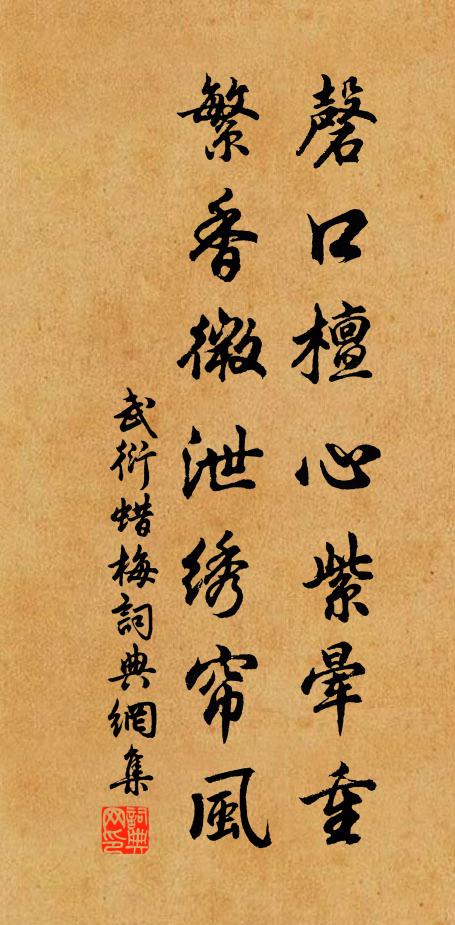 磬口檀心紫暈重
繁香微泄绣帘風
武衍蜡梅詞典網集
詞典网印